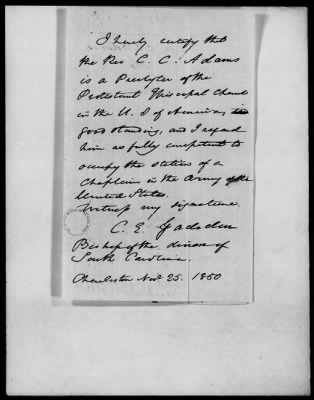 I hereby certify that
the Rev. C. C. Adams
is a Presbyter of the
Protestant Episcopal Church
in the U. S of America, in
good standing, and I regard
him as fully competent to
occupy the station of a
Chaplain in the Army of the
United States.
Witness my signature.
C. E. Gadsden
Bishop of the diocese of
South Carolina.
Charleston Nov. 25. 1850